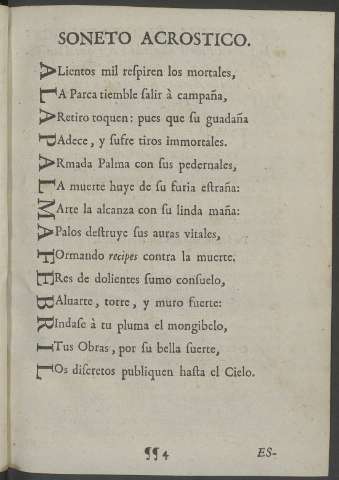 SONETO ACROSTICO.
ALientos mil reſpiren los mortales,
LA Parca tiemble ſalir à campaña,
A Retiro toquen: pues que ſu guadaña
PAdece, y ſufre tiros immortales.
ARmada Palma con ſus pedernales,
LA muerte huye de ſu furia eſtraña:
MArte la alcanza con ſu linda maña:
A Palos deſtruye ſus auras vitales,
FOrmando recipes contra la muerte.
ERes de dolientes ſumo conſuelo,
BAluarte, torre, y muro fuerte:
RIndaſe à tu pluma el mongibelo,
I Tus Obras, por ſu bella ſuerte,
LOs diſcretos publiquen haſta el Cielo.
¶¶ 4 ES-